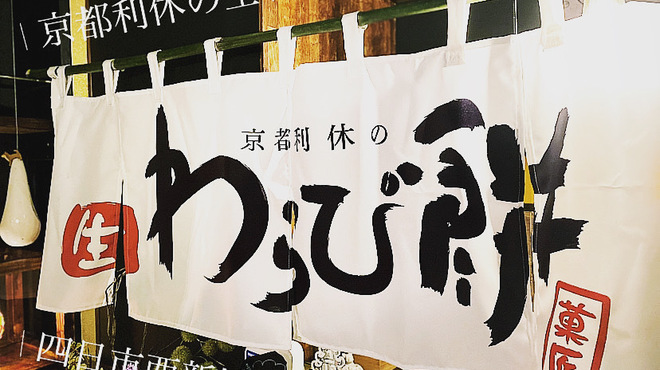 京都利休の生
京都利休の
わらび餅
生
菓匠
四日市西新